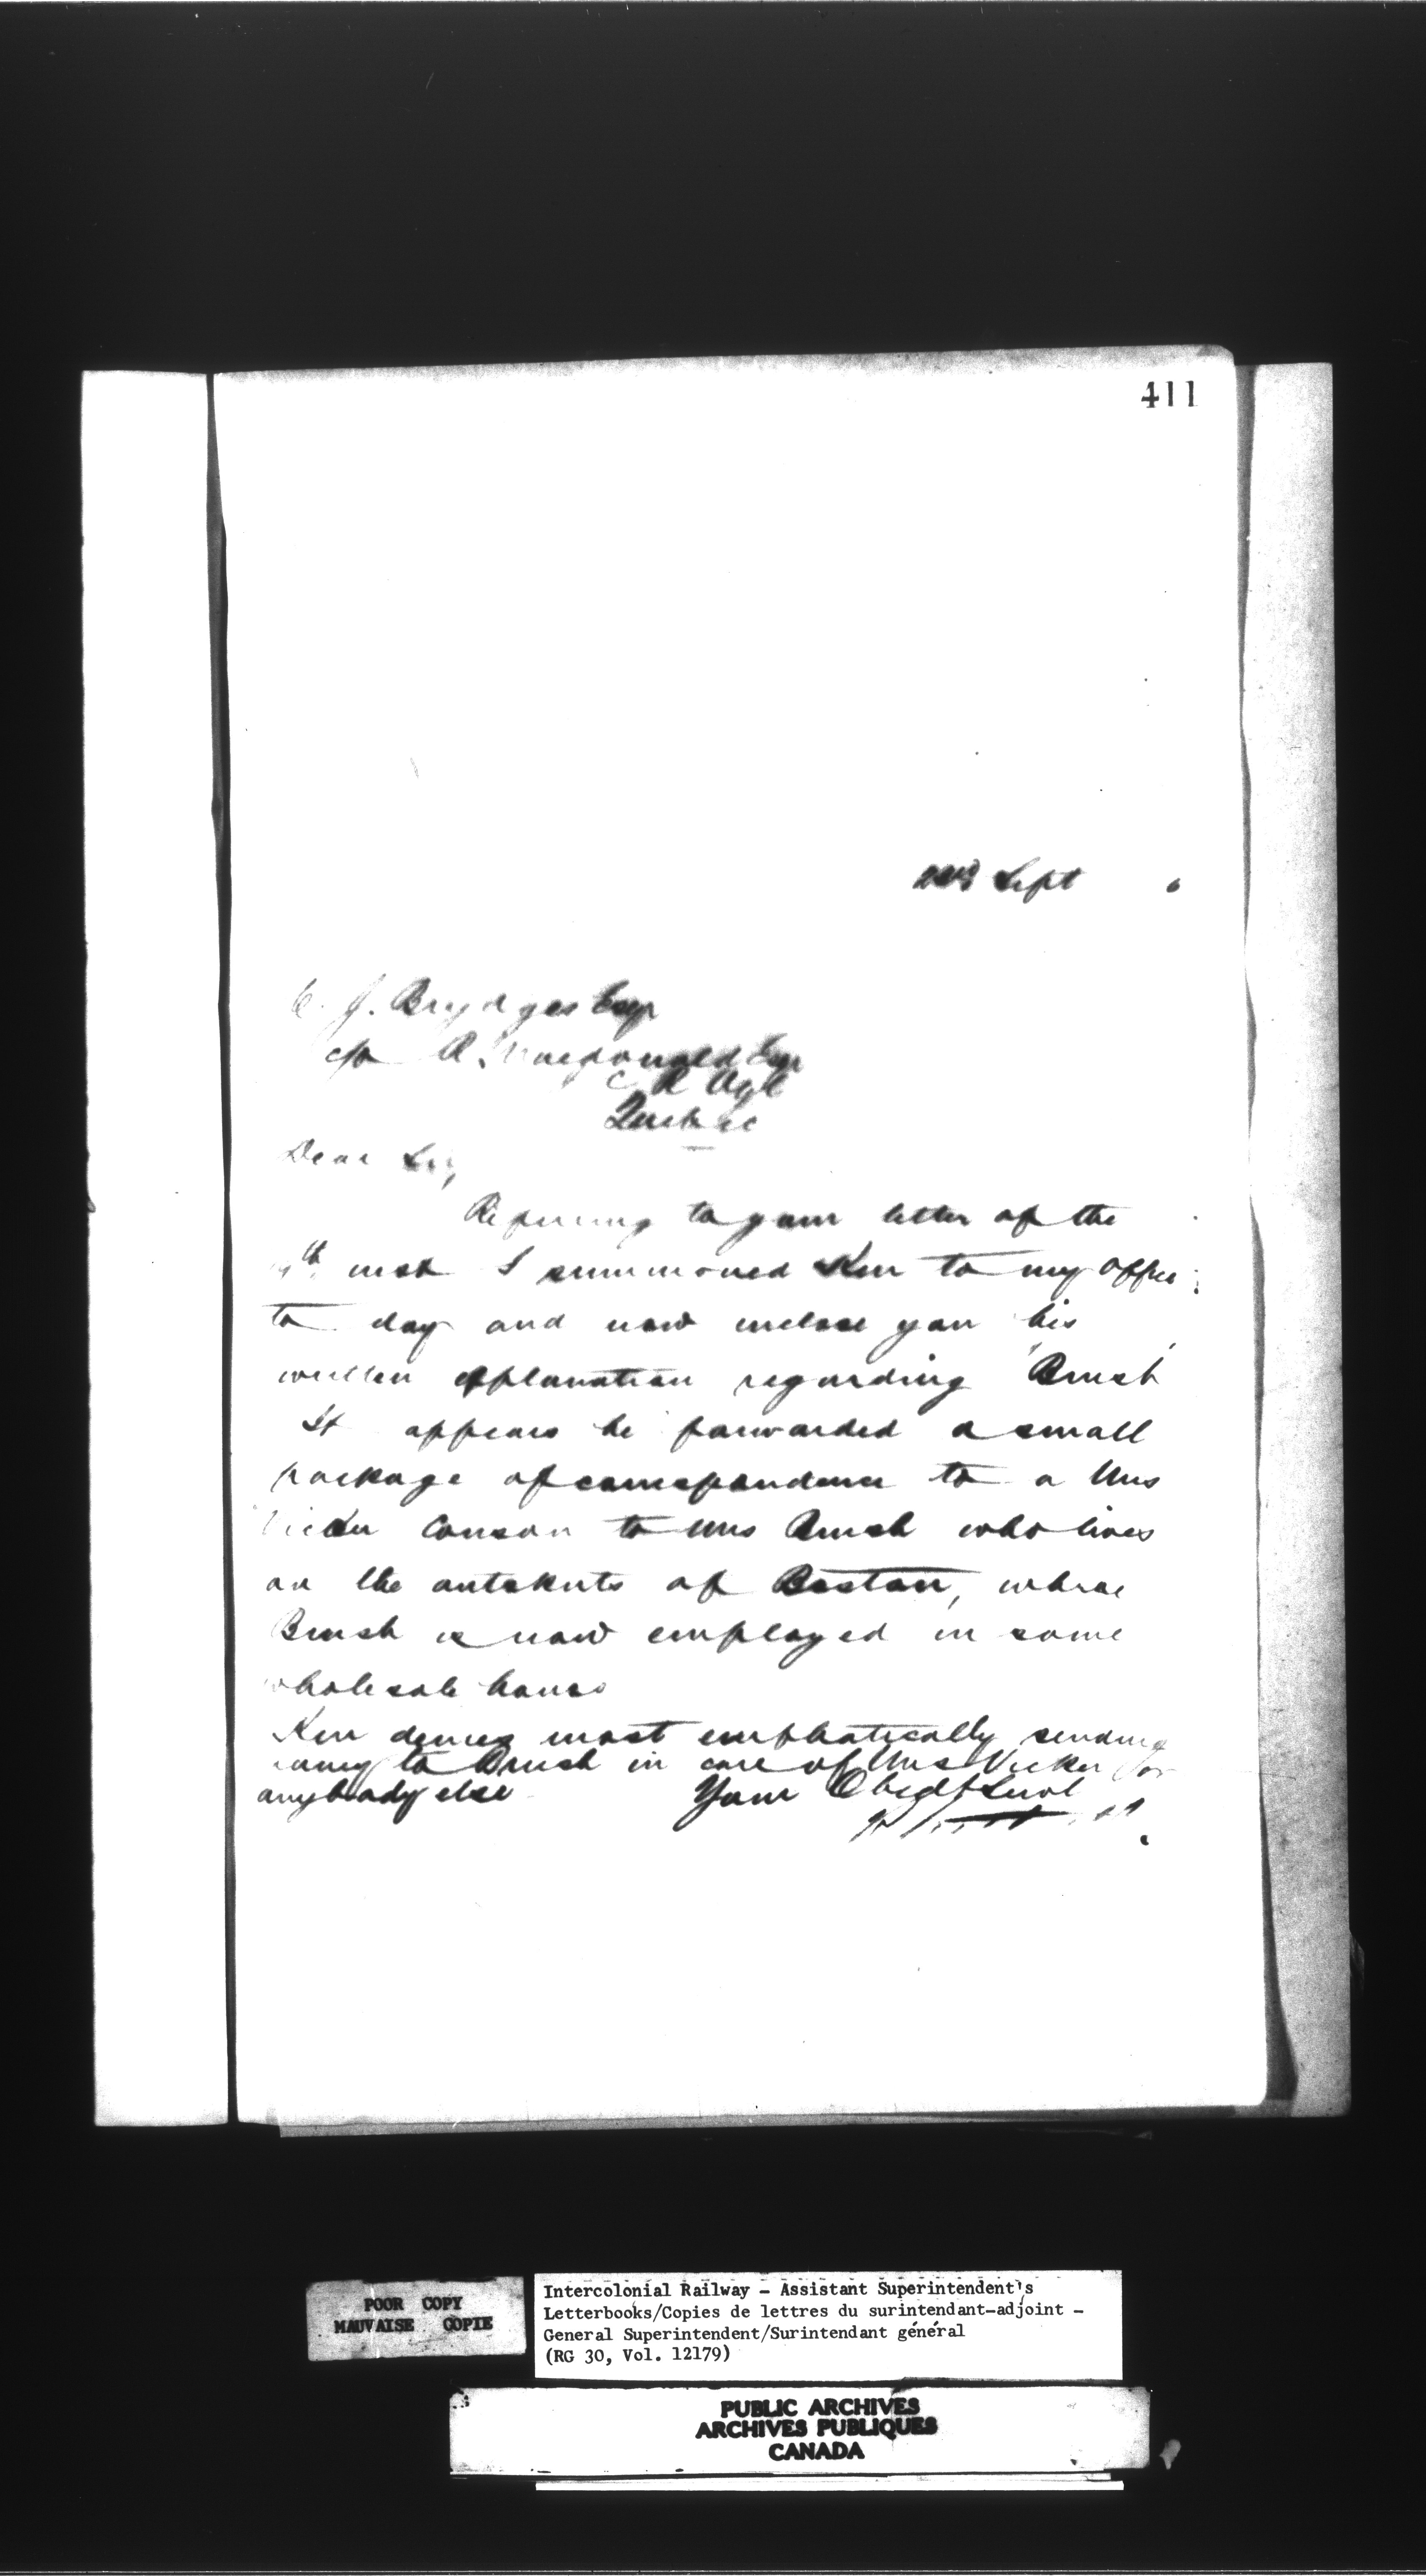 411
Sept 6
C. J. Brydges Esqr
c/o R. Macdonald Esqr
C R Agt
Quebec
Dear Sir,
Referring to your letter of the
inst I summoned Kerr to my office
to day and now enclose you his
written explanation regarding "Brush"
It appears he forwarded a small
package of correspondence to a Mrs
Vicker to Mrs Brush who lives
on the outskirts of Boston, where
Brush is now employed in some
wholesale house
Kerr denies most emphatically sending
money to Brush in care of Mrs Vicker or
anybody else Your Obedt Servt
POOR COPY
MAUVAISE COPIE
Intercolonial Railway - Assistant Superintendent's
Letterbooks/Copies de lettres du surintendant-adjoint -
General Superintendent/Surintendant général
(RG 30, Vol. 12179)
PUBLIC ARCHIVES
ARCHIVES PUBLIQUES
CANADA